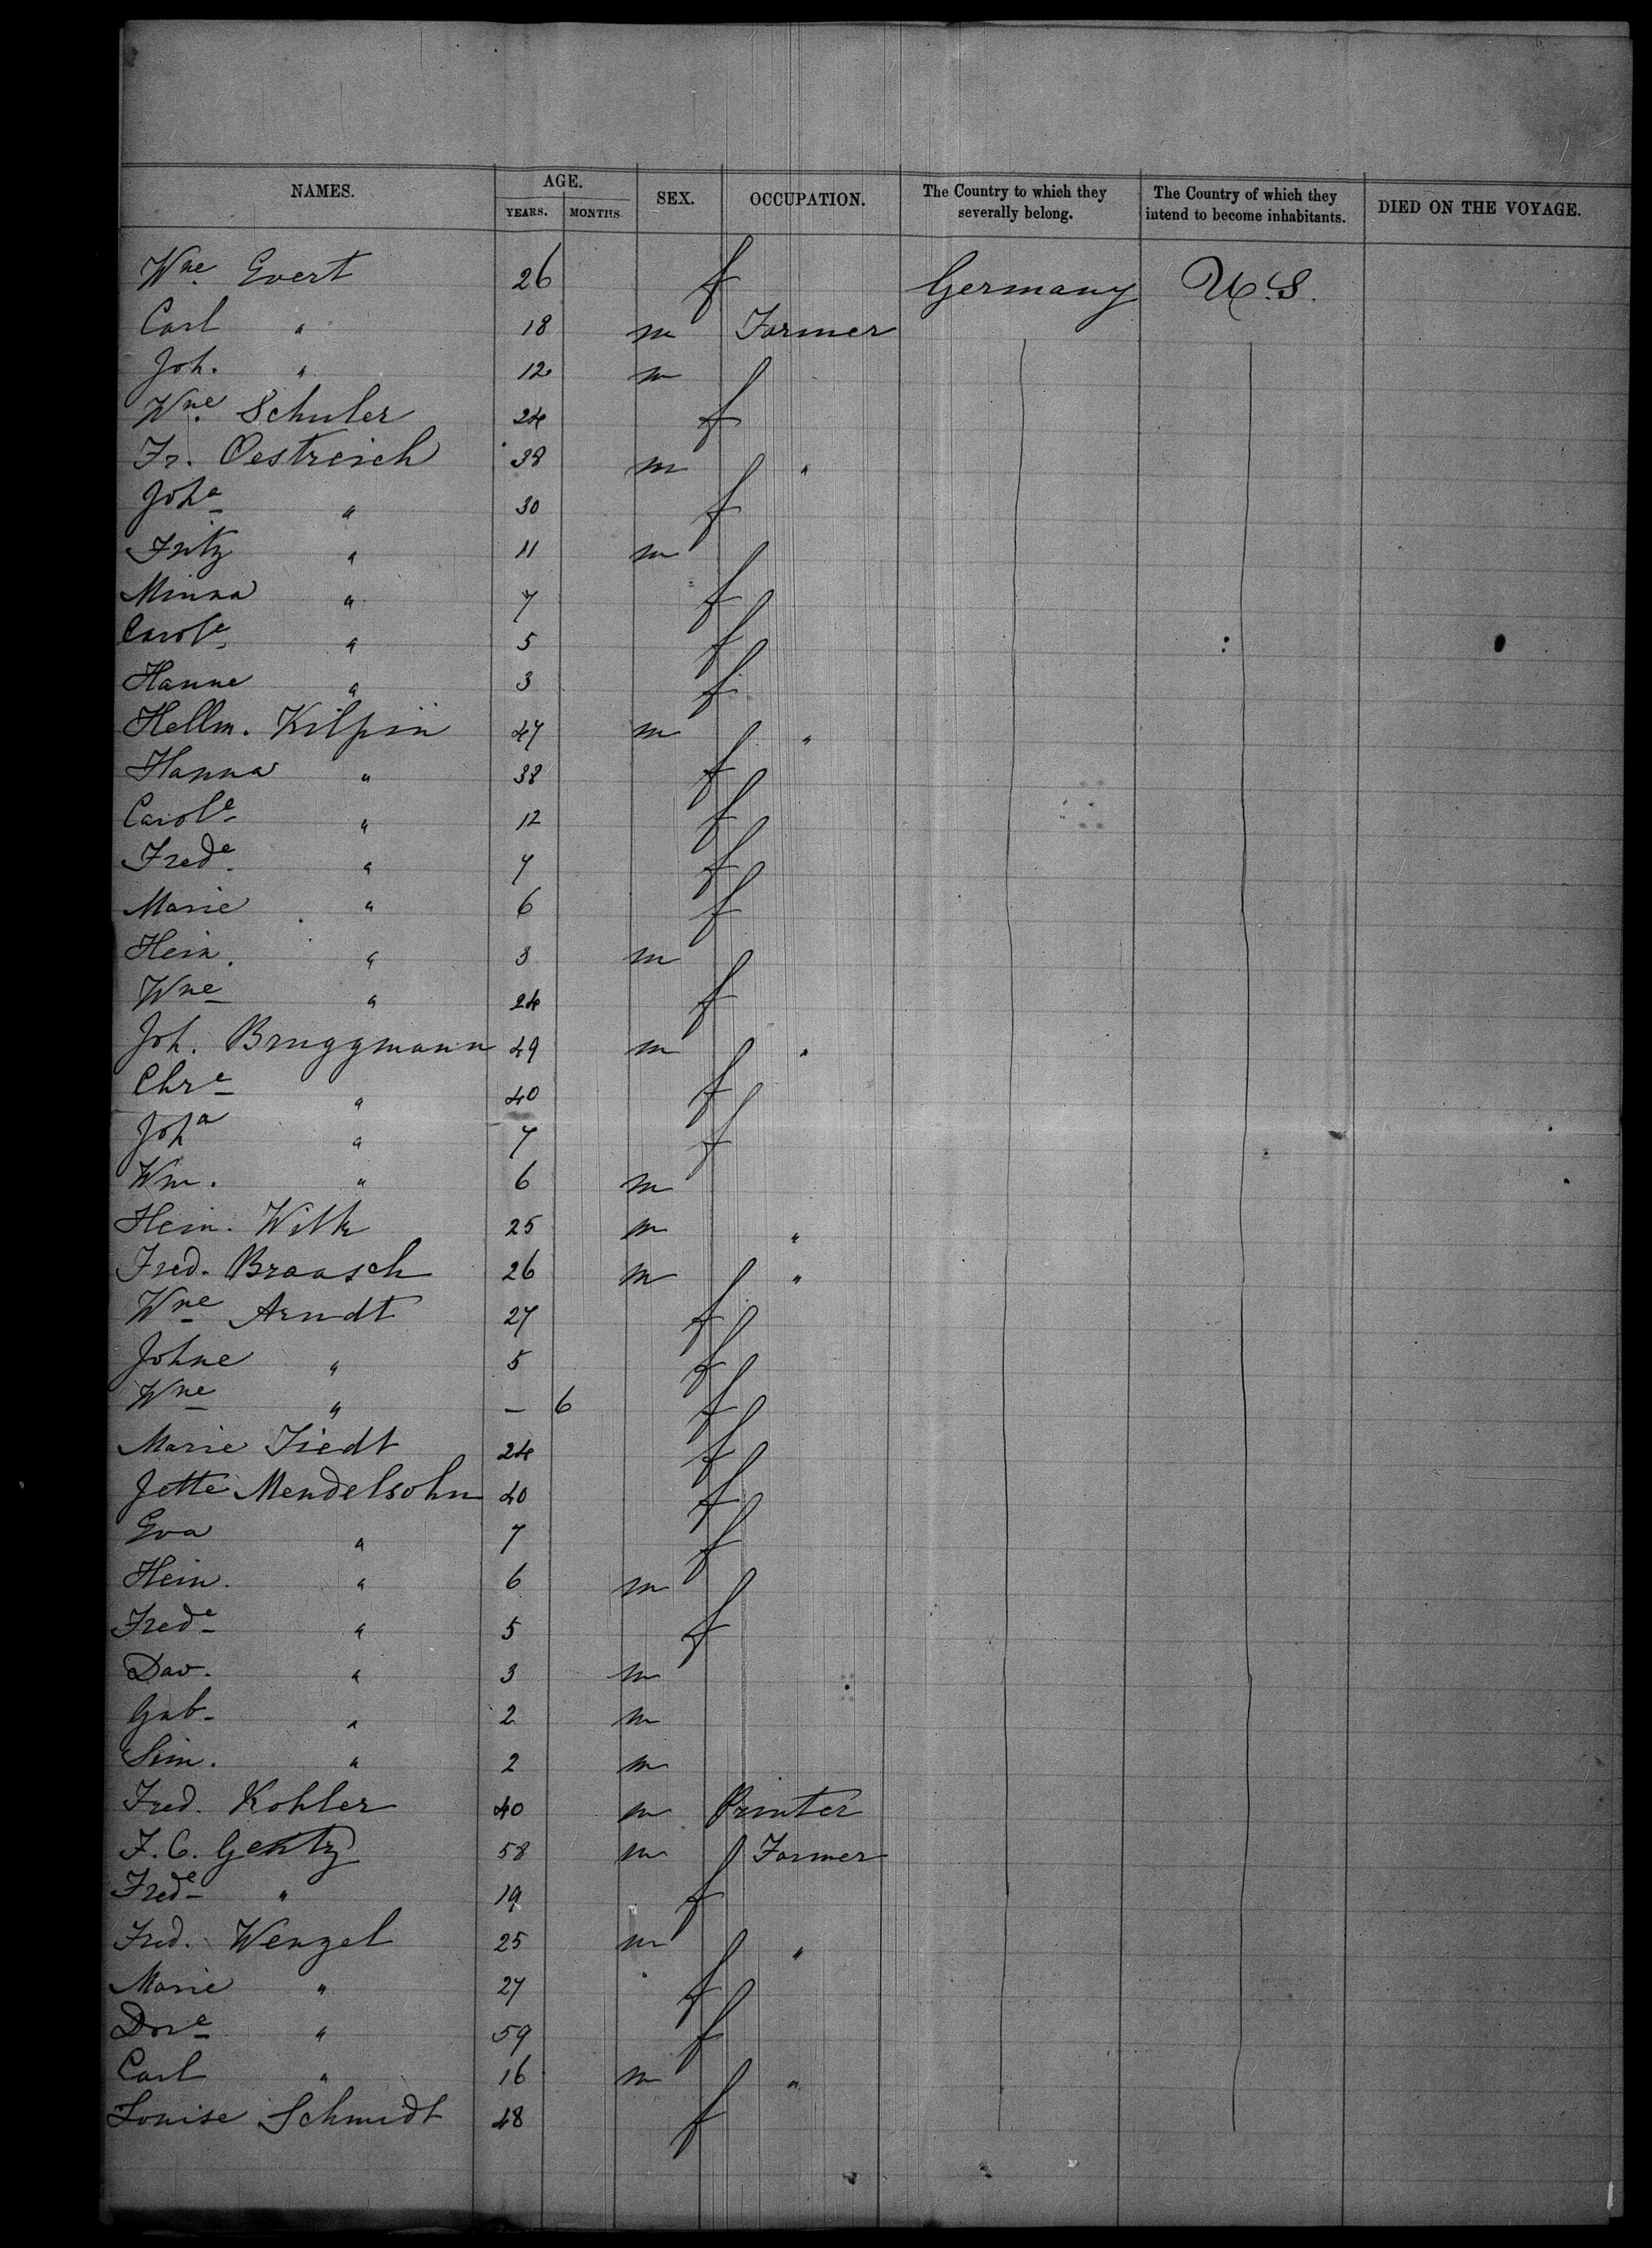 NAMES. AGE. YEARS. MONTHS SEX. OCCUPATION. The Country to which they severally belong. The Country of which they intend to become inhabitants. DIED ON THE VOYAGE.
Wne. Evert 26 f Germany U.S.
Carl " 18 m Farmer
Joh. " 12 m
Wne. Schuler 24 f
Fr. Oestreich 38 m "
Joha " 30 f
Fritz " 11 m
Minna " 7 f
Carole " 5 f
Hanne " 3 f
Hellm. Kilpin 47 m "
Hanna " 38 f
Carole " 12 f
Frede " 7 f
Marie " 6 f
Hein. " 3 m
Wne " 24 f
Joh. Bruggmann 49 m "
Chre " 40 f
Joha " 7 f
Wm. " 6 m
Hein. Witk 25 m "
Fred. Braasch 26 m "
Wne Arndt 27 f
Johne " 5 f
Wne " - 6 f
Marie Tiedt 24 f
Jette Mendelsohn 40 f
Eva " 7 f
Hein. " 6 m
Frede " 5 f
Dav. " 3 m
Gab. " 2 m
Sim. " 2 m
Fred. Kohler 40 m Printer
F. C. Gentz 58 m Farmer
Frede " 19 f
Fred. Wenzel 25 m "
Marie " 27 f
Dore " 59 f
Carl " 16 m "
Louise Schmidt 48 f